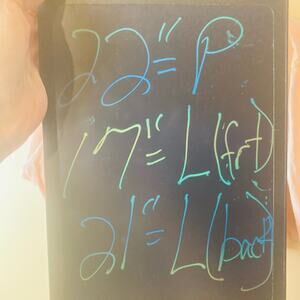 22"= P
17"= L(frt)
21"= L(back)